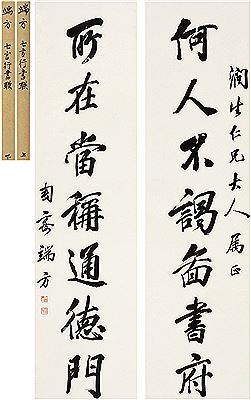 潤生仁兄大人属正
何人不謁圖書府
所在當稱通德門
匋齋端方
端方 七言行書聯 上
端方 七言行書聯 下